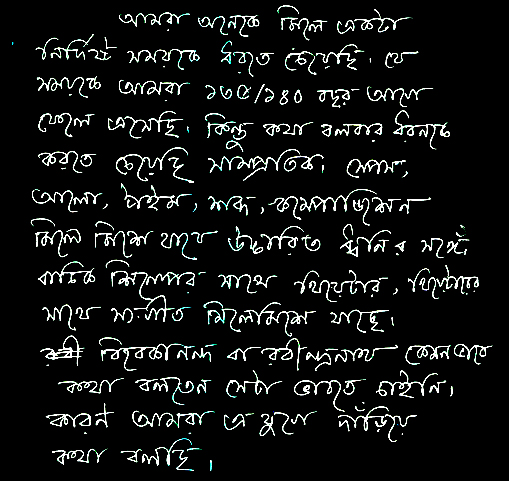 আমরা অনেকে মিলে একটা
নির্দিষ্ট সময়কে ধরতে চেয়েছি। যে
সময়কে আমরা ১৩৫/১৪০ বছর আগে
ফেলে এসেছি। কিন্তু কথা বলবার ধরনটা
করতে চেয়েছি সাম্প্রতিক। স্পেস,
আলো, টাইম, শব্দ, কম্পোজিশন
মিলে মিশে যাবে উচ্চারিত ধ্বনির সঙ্গে।
বাচিক শিল্পের সাথে থিয়েটার, থিয়েটারের
সাথে সংগীত মিলেমিশে যাচ্ছে।
বিবেকানন্দ বা রবীন্দ্রনাথ কেমনভাবে
কথা বলতেন সেটা ভাবতে চাইনি।
কারন আমরা এ যুগে দাঁড়িয়ে
কথা বলছি।